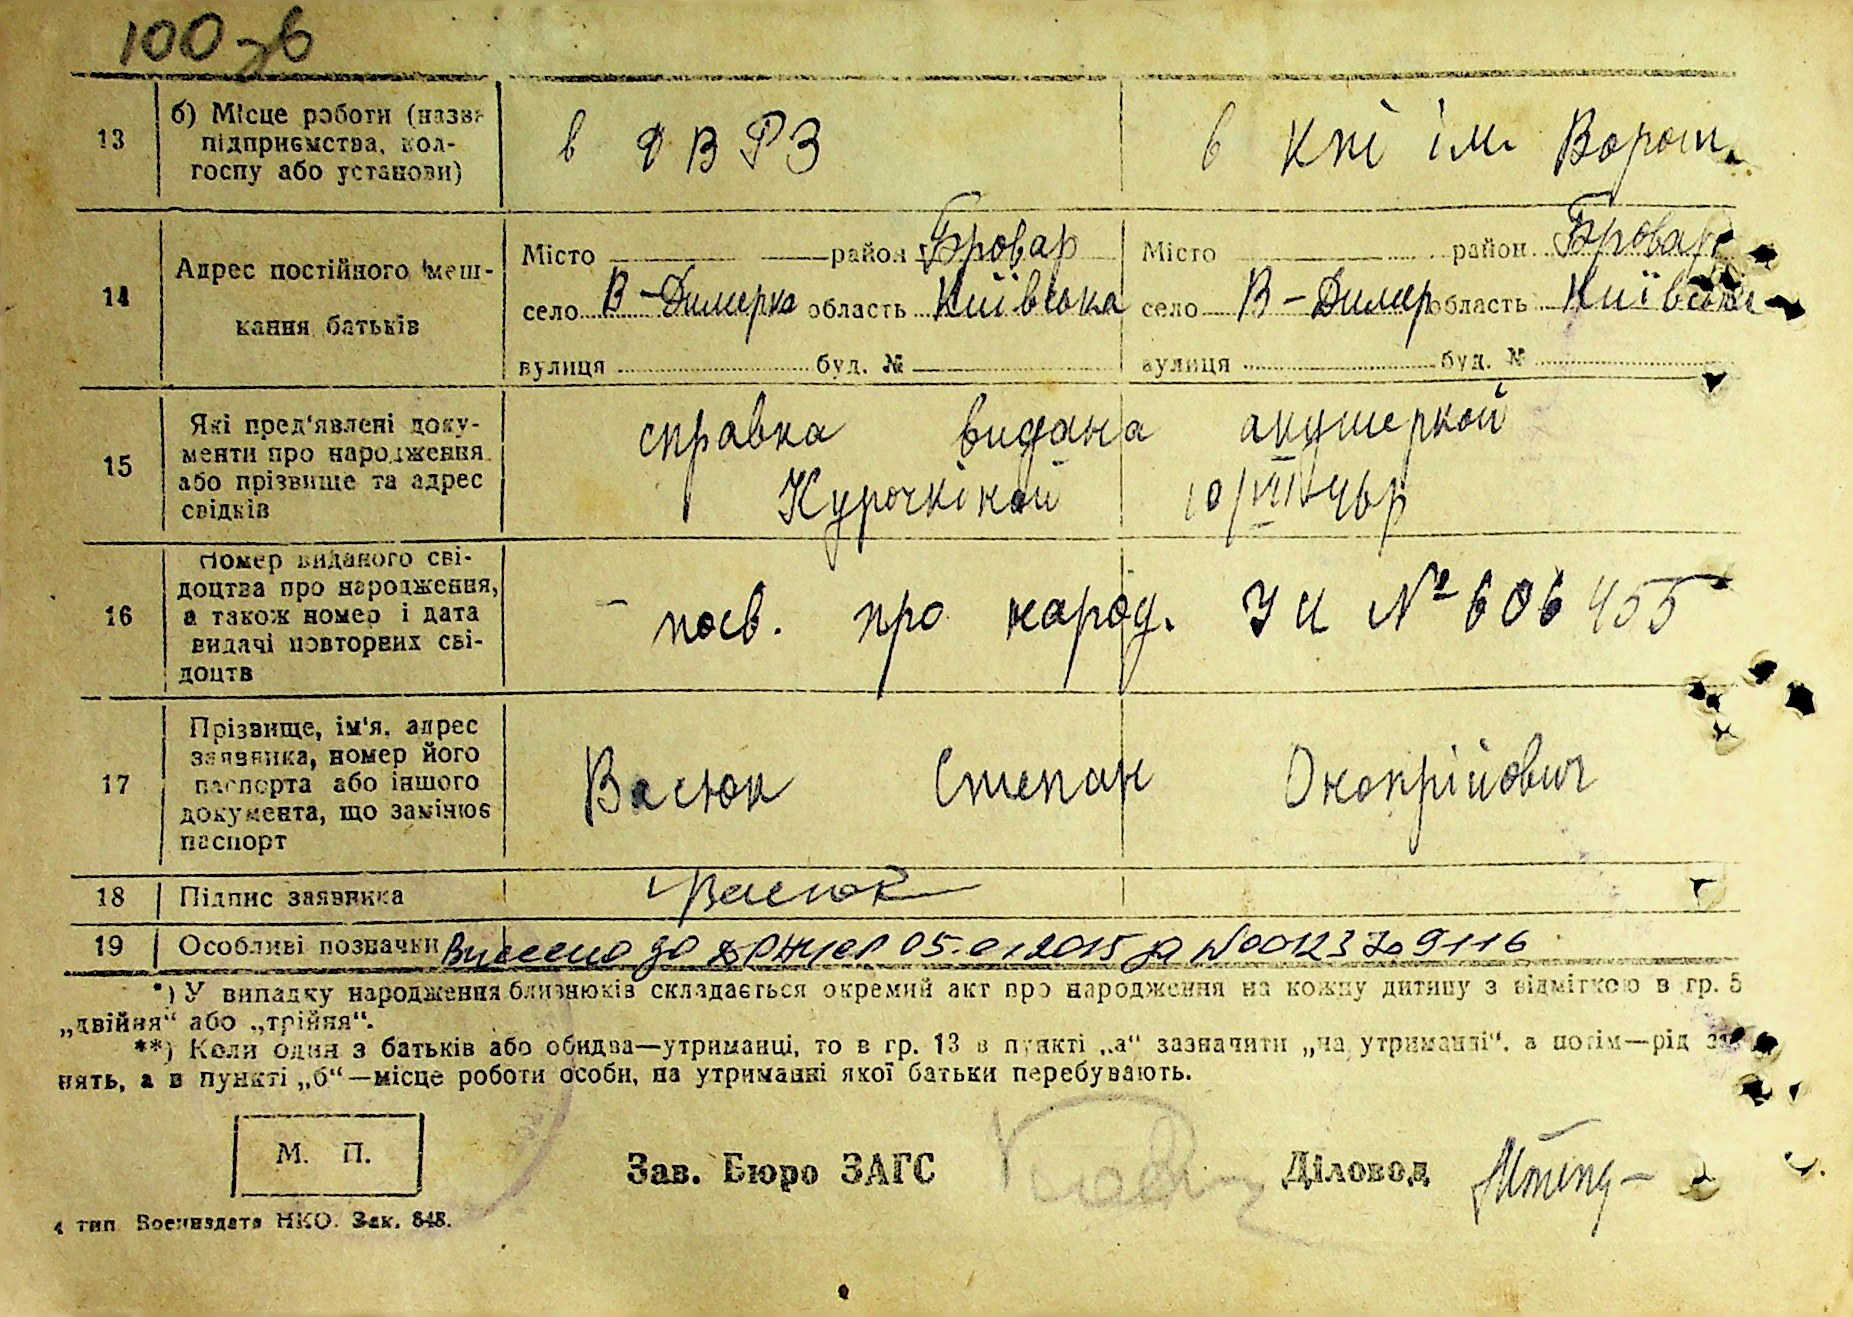 100 зв
13
б) Місце роботи (назва
підприємства, кол-
госпу або установи)
в ДВРЗ
в КПІ ім. Ворош.
14
Адрес постійного меш-
кання батьків
Місто район Бровар
село В-Димерка область Київська
вулиця буд. №
Місто район Бровар
село В-Димер область Київська
вулиця буд. №
15
Які пред'явлені доку-
менти про народження
або прізвище та адрес
свідків
справка видана акушеркой
Курочкіной 10/VIII-46р
16
Номер виданого сві-
доцтва про народження,
а також номер і дата
видачі повторних сві-
доцтв
посв. про народ. УИ № 606455
17
Прізвище, ім'я, адрес
заявника, номер його
паспорта або іншого
документа, що замінює
паспорт
Васюк Степан Оноprійович
18
Підпис заявника
Васюк
19
Особливі позначки
Внесено до ДРАЦСГ 05.01.2015 за №00123709116
*) У випадку народження близнюків складається окремий акт про народження на кожну дитину з відміткою в гр. 5
„двійня“ або „трійня“.
**) Коли один з батьків або обидва—утриманці, то в гр. 13 в пункті „а“ зазначити „на утриманні“, а потім—рід за
нять, а в пункті „б“—місце роботи особи, на утриманні якої батьки перебувають.
М. П.
Зав. Бюро ЗАГС
Діловод
4 тип. Воениздата НКО. Зак. 848.